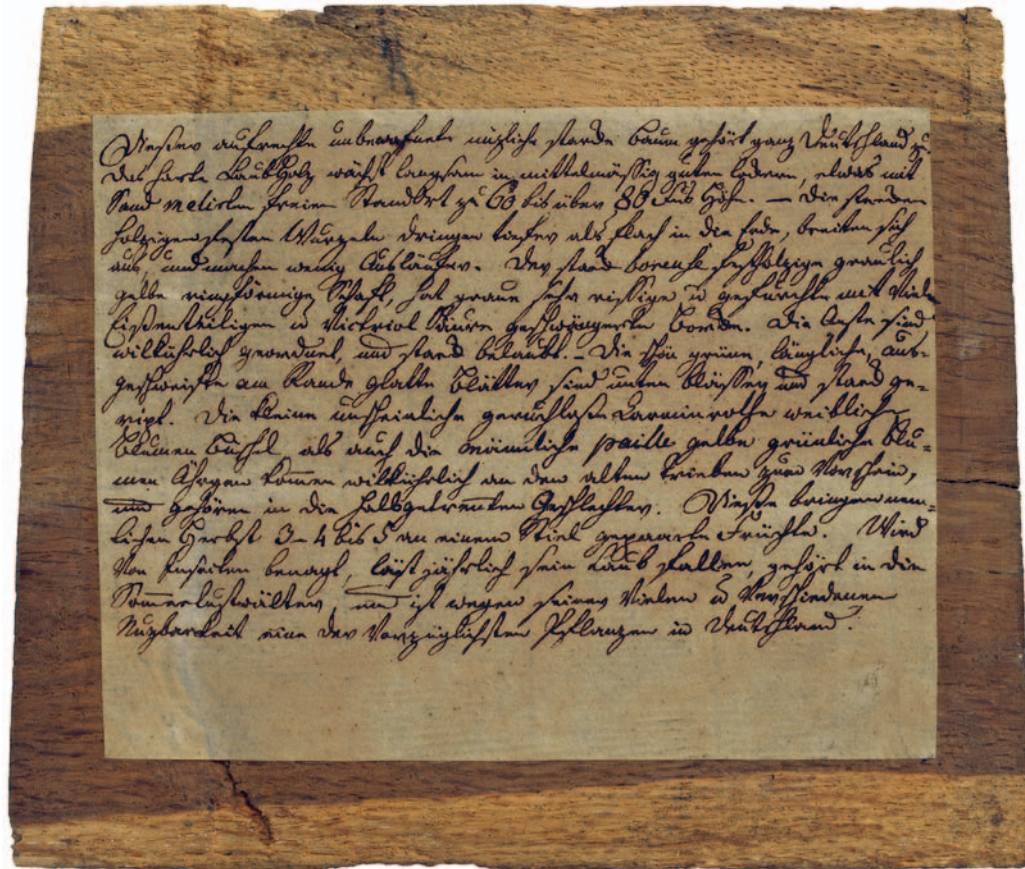 Dießer aufrechte unbewafnete nüzliche starcke Baum gehört ganz Deutschland zu.
Das harte Laub Holz wächst langsam in mittelmässig guten lockern, etwas mit
Sand melirten freien Standort zu 60 bis über 80 Fus Höhe. — Die starcken
holzigen festen Wurzeln dringen tiefer als flach in die Erde, breiten sich
aus, und machen wenig Ausläufer. Der starck festholzige graulich
gelbe ringförmige Schaft, hat graue sehr rissige u gefurchte mit vielen
Eißentheiligen u Victriol Säure geschwängerte Borcke. Die Aeste sind
wilkührlich geordnet, und starck belaubt. – Die schön grüne, längliche, aus-
geschweifte am Rande glatte Blätter sind unten blässer und starck ge-
ript. Die kleine unscheinliche geruchlose Carminrothe weibliche
Blumen Büschel, als auch die mänliche paille gelbe grünliche Blu-
men kommen wilkührlich an den alten Trieben zum Vorschein,
und gehören in die halbgetrenten Geschlechter. Dieße bringen nem-
lichen Herbst 3–4 bis 5 an einem Stiel gepaarte Früchte. Wird
von Insecten benagt, läst jährlich sein Laub fallen, gehört in die
Sommerlustwälter, und ist wegen seiner vielen u verschiedenen
Nuzbarkeit eine der vorzüglichsten Pflanzen in Deutschland.